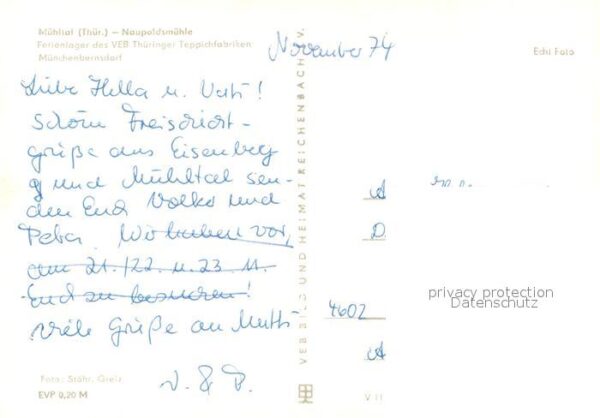 Mühltal (Thür.) — Naupoldsmühle
Ferienlager des VEB Thüringer Teppichfabriken
Münchenbernsdorf
November 74
Echt Foto
Liebe Hella u. Vati!
Schöne Freischicht-
grüße aus Eisenberg
und Mühltal sen-
den Euch Volker und
Petra. Wir haben vor,
am 21./22. u. 23. 11.
Euch zu besuchen!
Viele Grüße an Mutti
V. & P.
VEB BILD UND HEIMAT REICHENBACH i. V.
4602
privacy protection
Datenschutz
Foto: Stöhr, Greiz
EVP 0,20 M
V 11